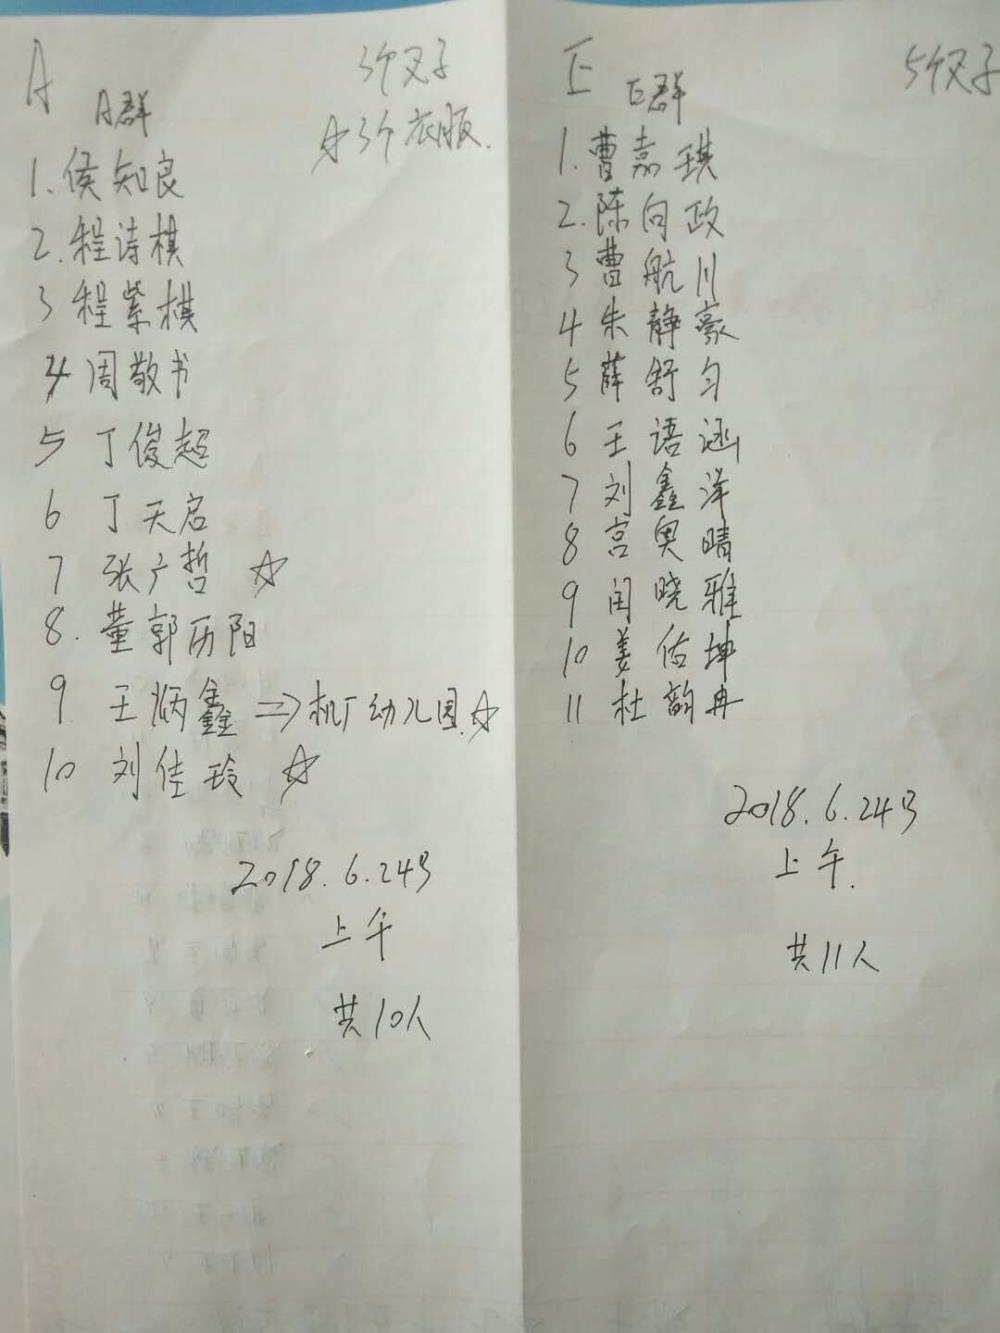 A
3个叉子
A群
☆3个衣服.
1.侯知良
2.程诗棋
3 程紫棋
4 周敬书
5 丁俊超
6 丁天启
7 张广哲 ☆
8. 董郭历阳
9 王炳鑫 => 机厂幼儿园.☆
10 刘佳玲 ☆
2018.6.24号
上午
共10人
E
5个叉子
E群
1.曹嘉琪
2.陈向政
3 曹航川
4 朱静豪
5 薛舒匀
6 王语涵
7 刘鑫洋
8 宫奥晴
9 闰晓雅
10 姜佑坤
11 杜韵冉
2018.6.24号
上午.
共11人